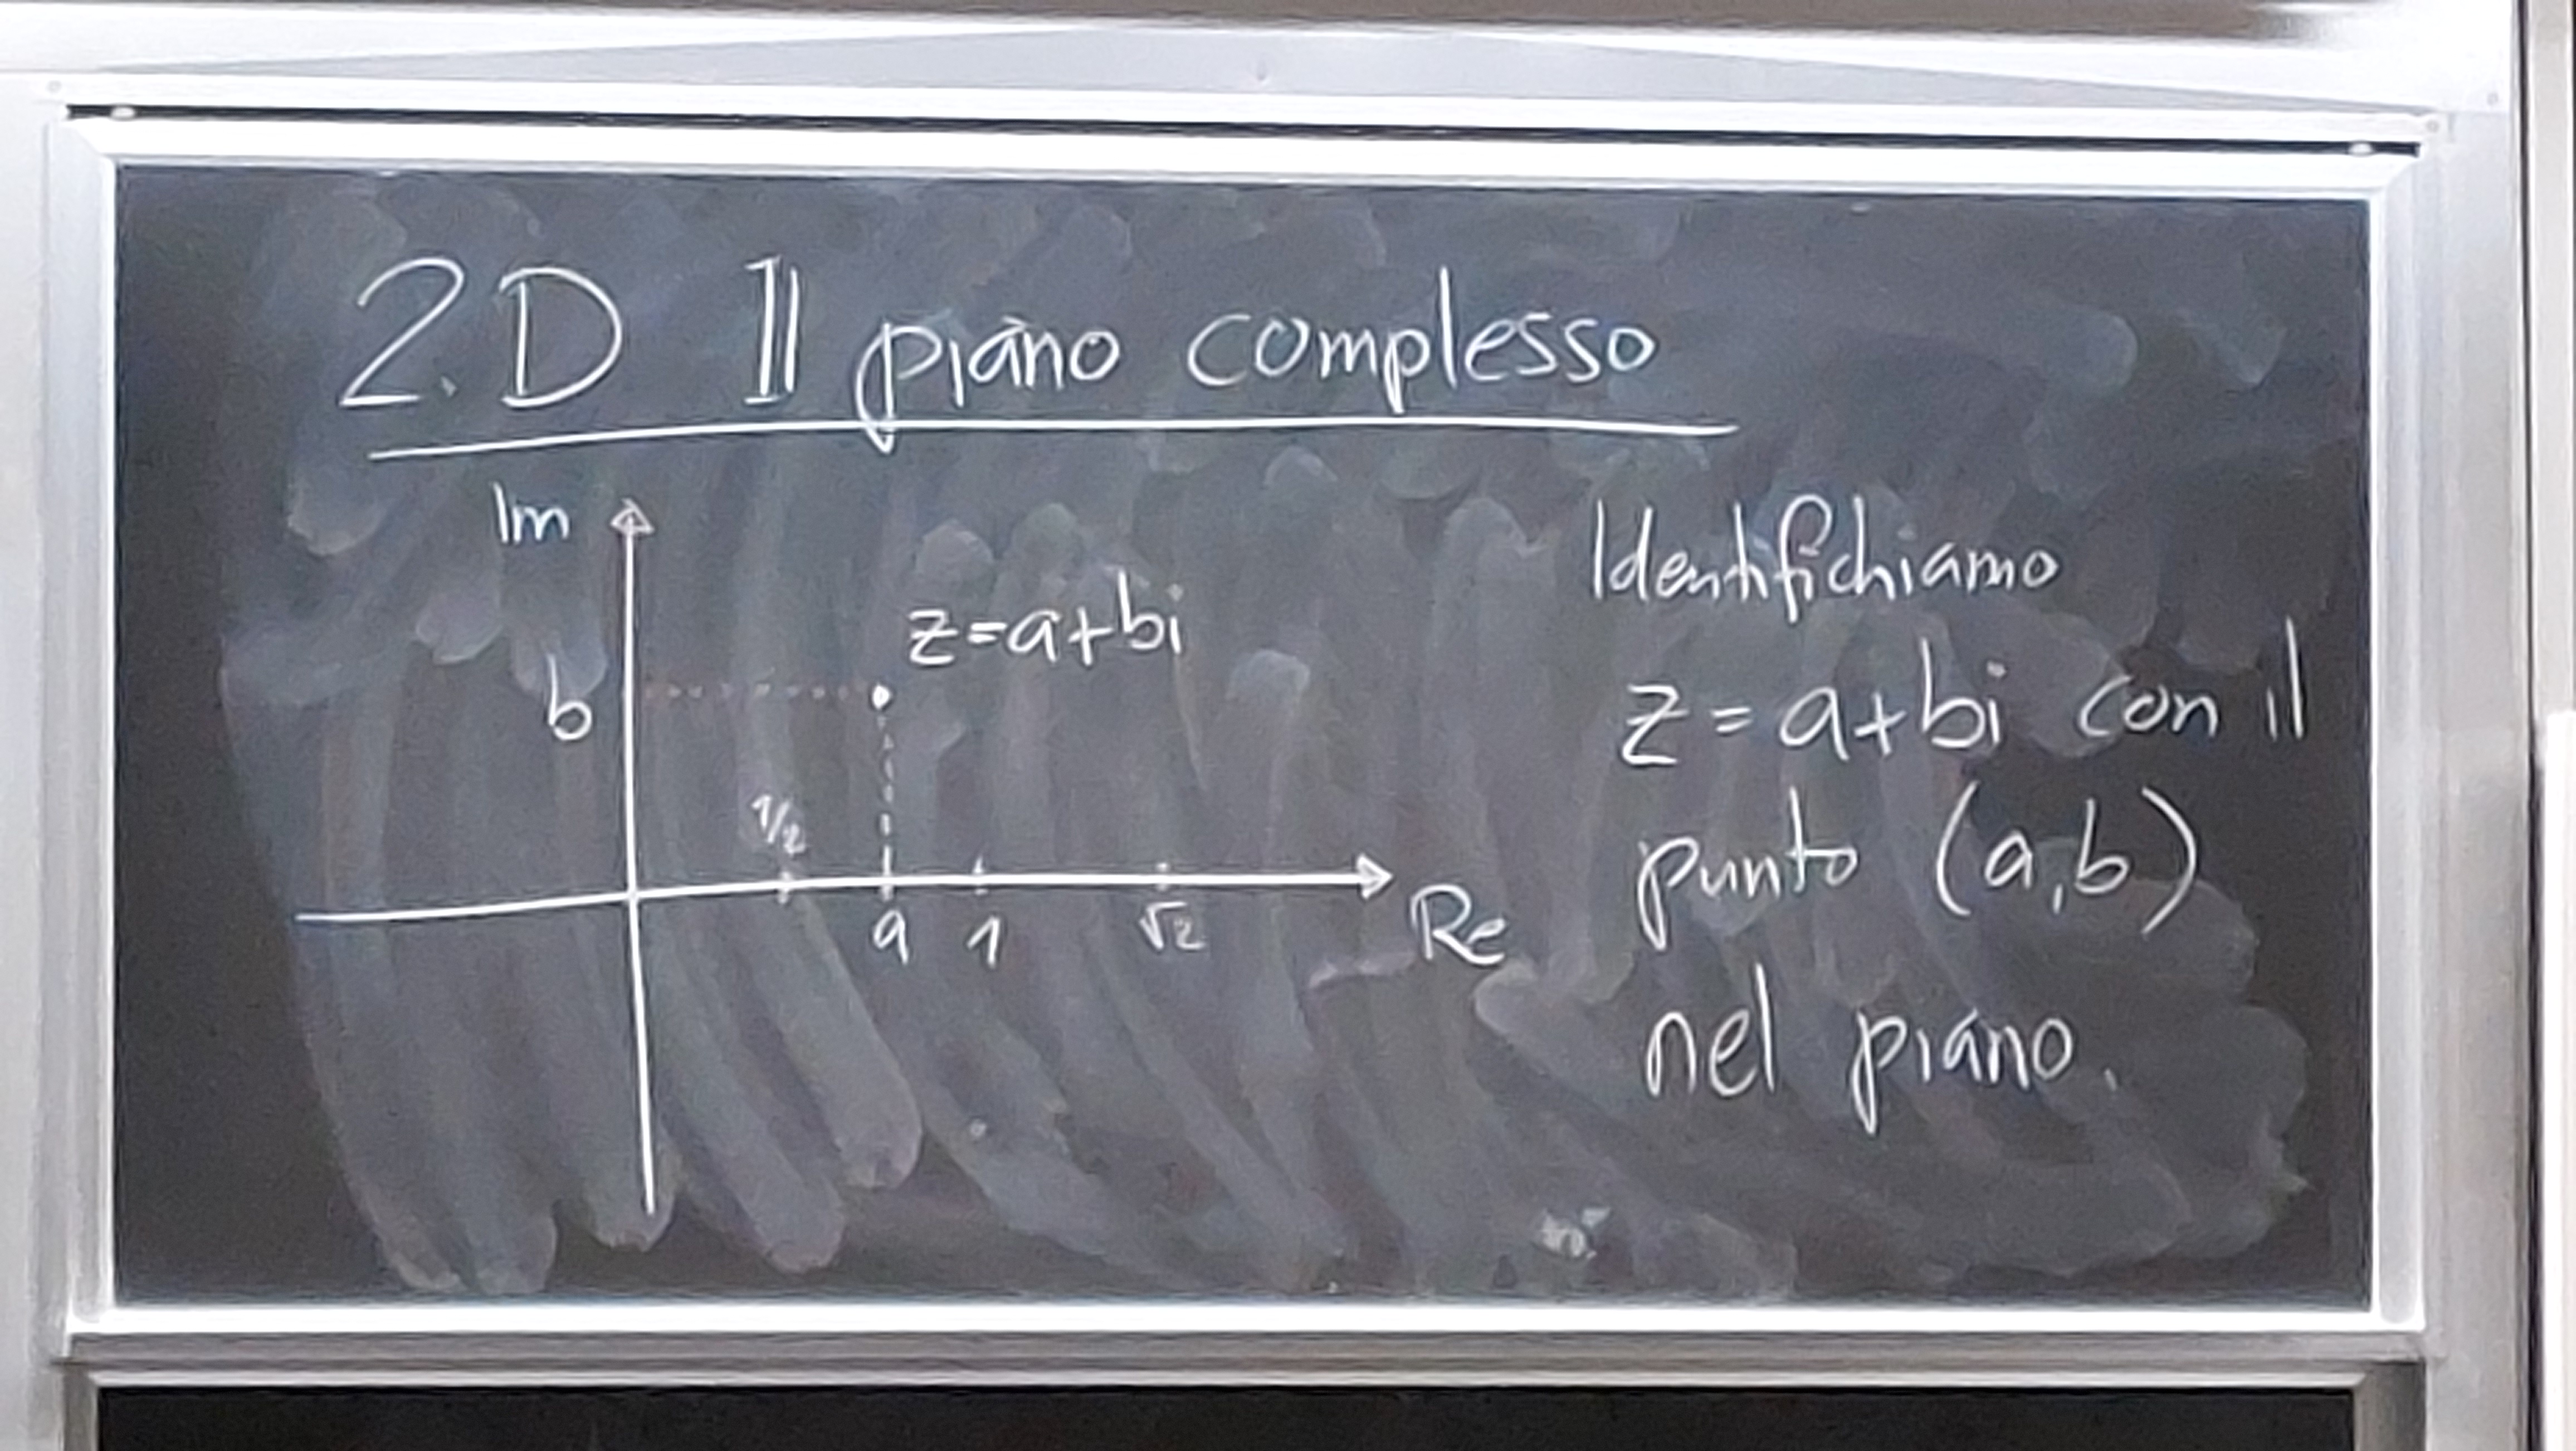 2.D Il piano complesso
Im
z=a+bi
b
1/2
a 1 √2 Re
Identifichiamo
z=a+bi con il
punto (a,b)
nel piano.